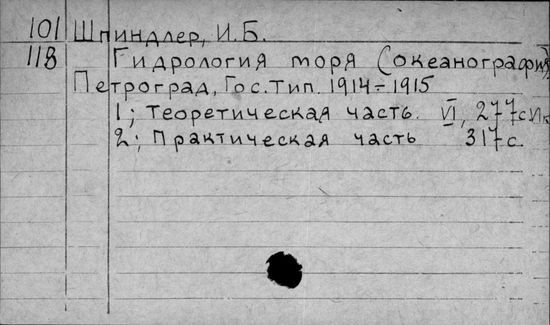 101 Шпиндлер, И.Б.
113 Гидрология моря (океанография)
Петроград, Гос. тип. 1914-1915
1; Теоретическая часть. VI, 277с
2; Практическая часть 317с.